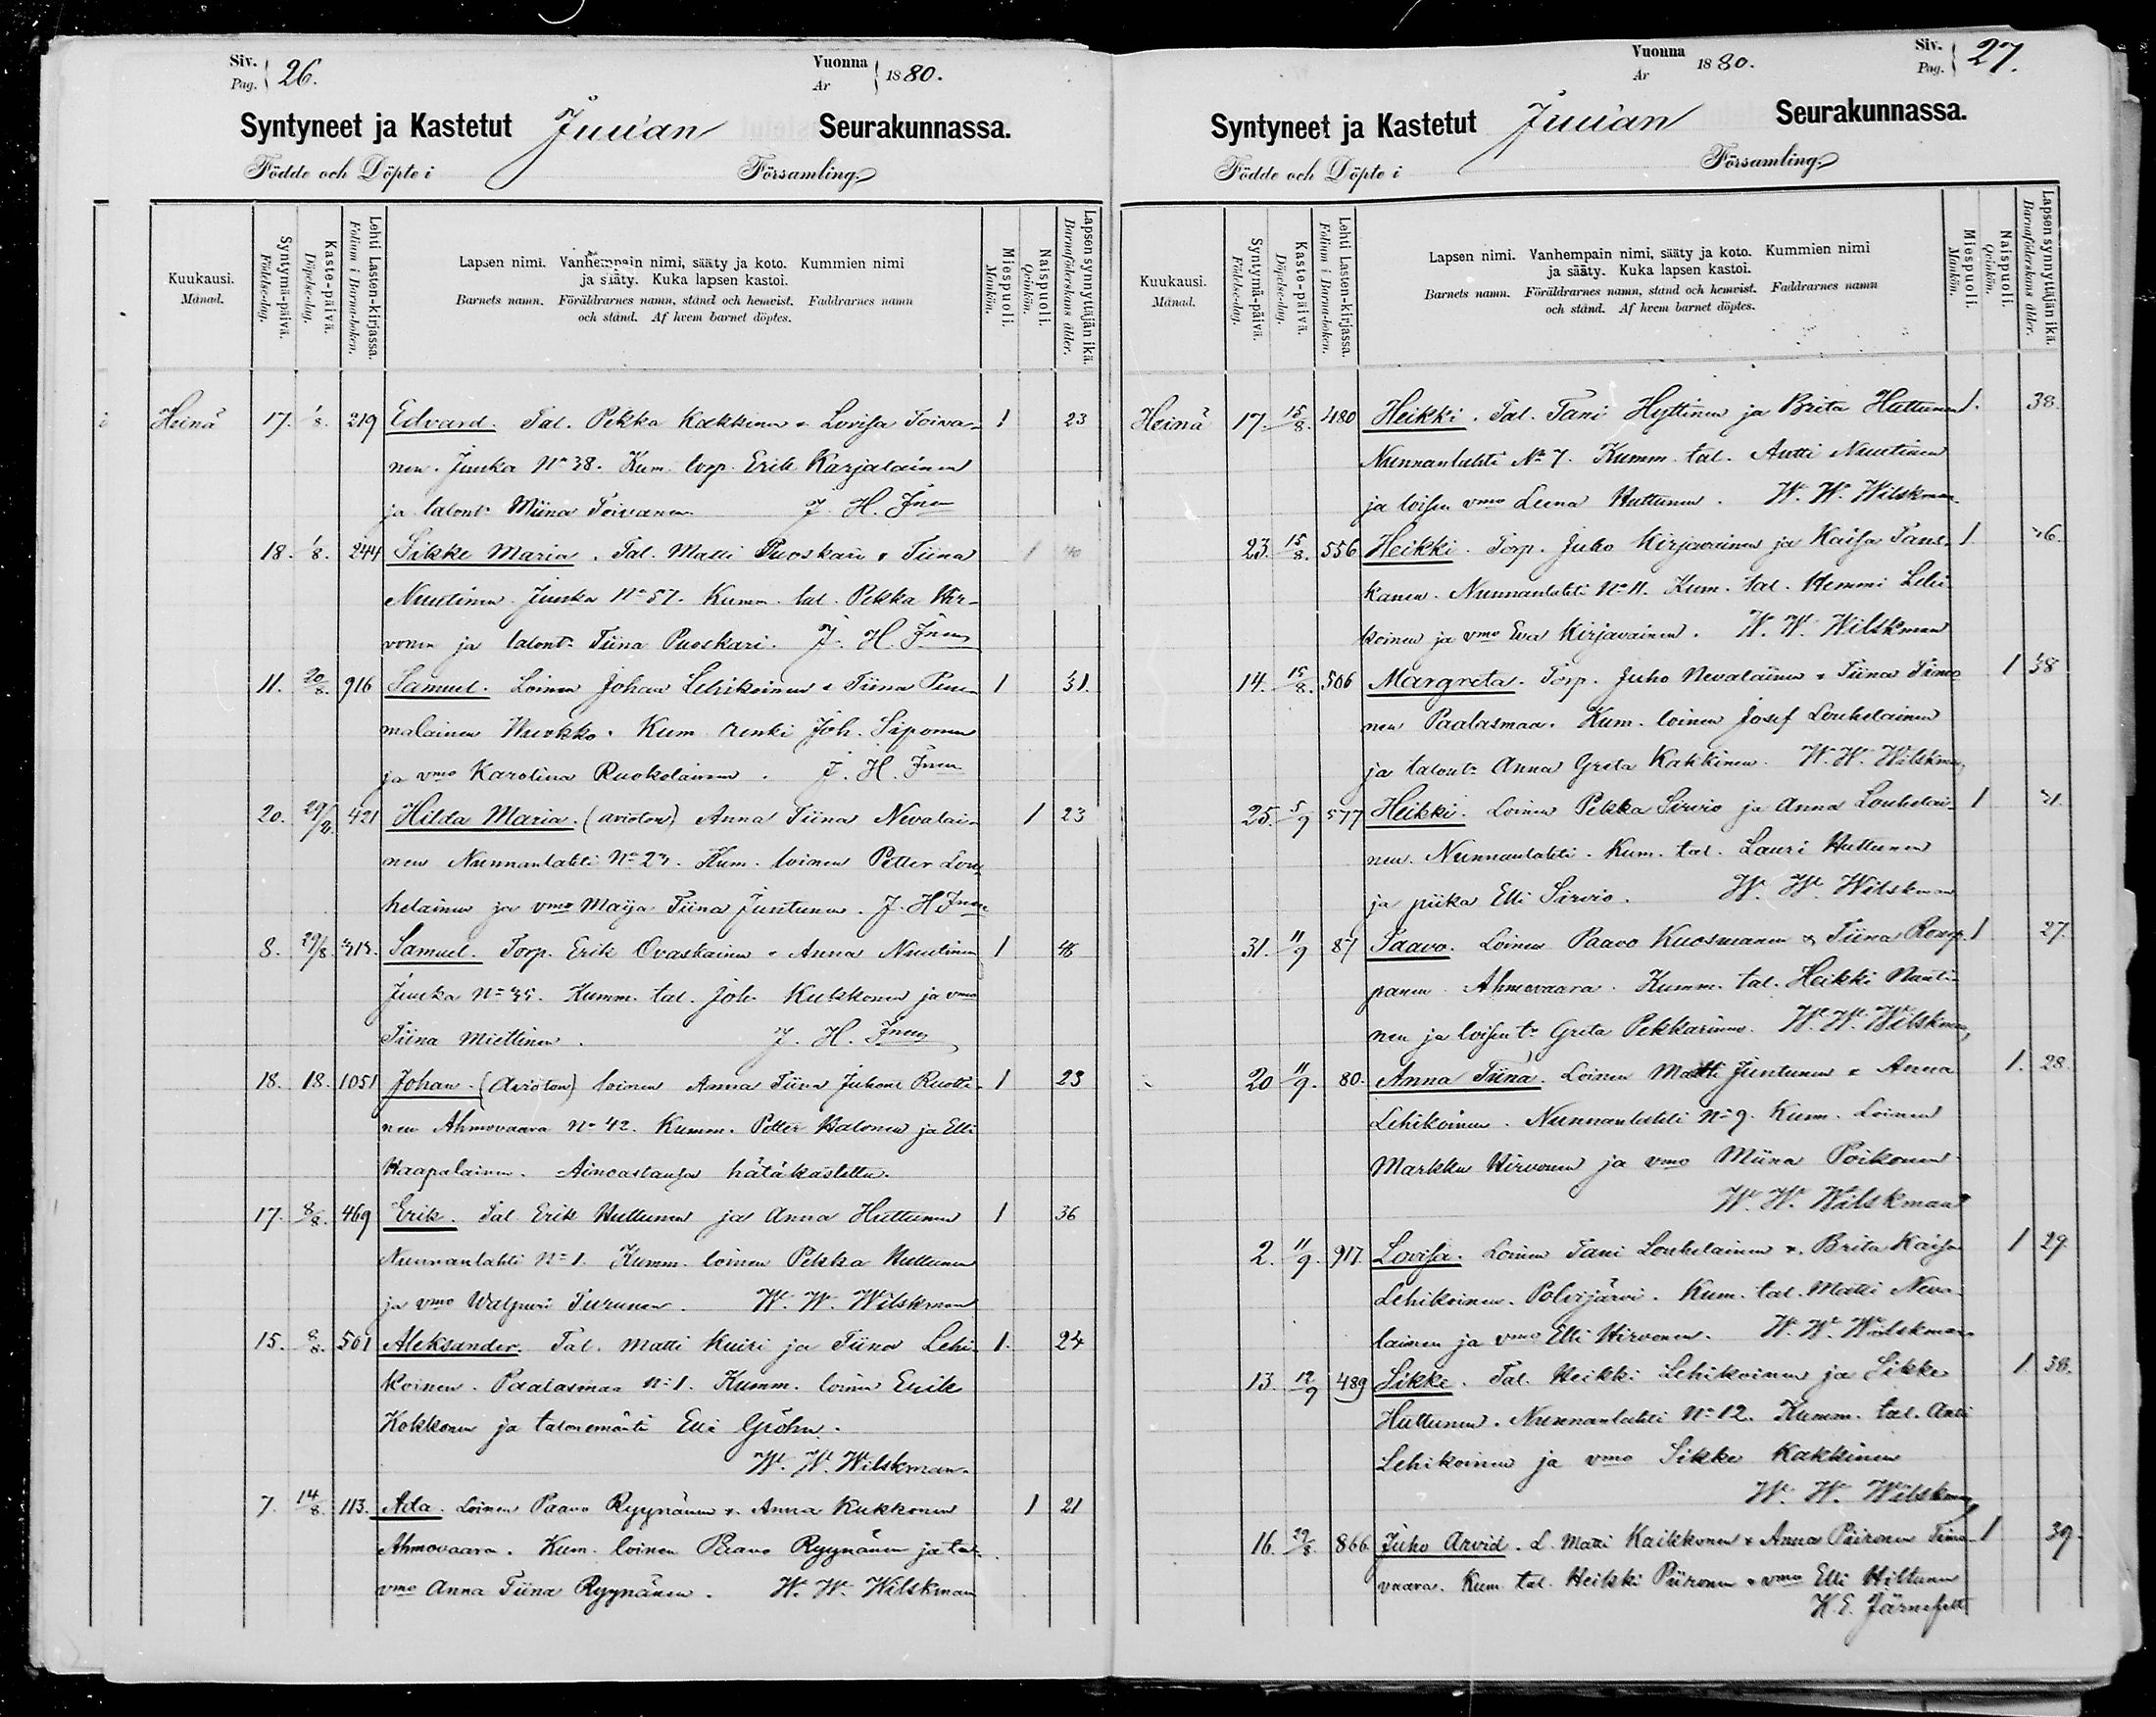 Siv. 26.
Pag.
Vuonna 1880.
År
Syntyneet ja Kastetut Juuan Seurakunnassa.
Födde och Döpte i Församling.
Kuukausi.
Månad.
Syntymä-päivä.
Födelse-dag.
Kaste-päivä.
Döpelse-dag.
Lehti Lasten-kirjassa.
Folium i Barna-boken.
Lapsen nimi. Vanhempain nimi, sääty ja koto. Kummien nimi
ja sääty. Kuka lapsen kastoi.
Barnets namn. Föräldrarnes namn, stånd och hemvist. Faddrarnes namn
och stånd. Af hvem barnet döptes.
Miespuoli.
Mankön.
Naispuoli.
Qvinkön.
Lapsen synnyttäjän ikä.
Barnaföderskans ålder.
Heinä 17. 1/8. 219 Edvard. Tal. Pekka Kakkinen & Lovisa Toiva- 1 23
nen. Juuka No 38. Kum. torp. Erik Karjalainen
ja talont. Miina Toivanen J. H.
18. 1/8. 244 Sikke Maria. Tal. Matti Puoskari & Tiina 1 40
Nuutinen Juuka No 57. Kumm. tal. Pekka Hir-
vonen ja talont. Tiina Puoskari. J. H.
11. 20/8. 916 Samuel. Loinen Johan Lehikoinen & Tiina 1 31.
malainen Vuokko. Kum renki Joh. Siponen
ja vmo Karolina Ruokolainen. J. H.
20. 29/8. 421 Hilda Maria. (avioton) Anna Tiina Nevalai- 1 23
nen Nunnanlahti No 23. Kum. loinen Petter Lou-
helainen ja vmo Maija Tiina Juntunen. J. H.
8. 29/8. Samuel. Torp. Erik Ovaskainen & Anna Nuutinen 1 46
Juuka No 35. Kumm. tal. Joh. Kukkonen ja vmo
Tiina Miettinen. J. H.
18. 18. 1051 Johan. (Avioton) loinen Anna Tiina Juhont. Ruotti- 1 23
nen Ahmovaara No 42. Kumm. Petter Halonen ja Elli
Haapalainen. Ainoastansa hätäkastettu.
17. 8/8. 469 Erik. Tal Erik Huttunen ja Anna Huttunen 1 36
Nunnanlahti No 1. Kumm. loinen Pekka Huttunen
ja vmo Walpuri Turunen. W. W. Wilskman
15. 8/8. 501 Aleksander. Tal. Matti Kuiri ja Tiina Lehi- 1. 24
koinen. Paalasmaa No 1. Kumm. loinen Erik
Kokkonen ja talonemäntä Elli Gröhn.
W. W. Wilskman.
7. 14/8. 113. Ada. Loinen Paavo Ryynänen & Anna Kukkonen 1 21
Ahmovaara. Kum. loinen Paavo Ryynänen ja tal.
vmo Anna Tiina Ryynänen. W. W. Wilskman
Vuonna 1880.
År
Siv. 27.
Pag.
Syntyneet ja Kastetut Juuan Seurakunnassa.
Födde och Döpte i Församling.
Kuukausi.
Månad.
Syntymä-päivä.
Födelse-dag.
Kaste-päivä.
Döpelse-dag.
Lehti Lasten-kirjassa.
Folium i Barna-boken.
Lapsen nimi. Vanhempain nimi, sääty ja koto. Kummien nimi
ja sääty. Kuka lapsen kastoi.
Barnets namn. Föräldrarnes namn, stånd och hemvist. Faddrarnes namn
och stånd. Af hvem barnet döptes.
Miespuoli.
Mankön.
Naispuoli.
Qvinkön.
Lapsen synnyttäjän ikä.
Barnaföderskans ålder.
Heinä 17. 15/8. 480 Heikki. Tal. Tani Hyttinen ja Brita Huttunen 1. 38.
Nunnanlahti No 7. Kumm. tal. Antti Nuutinen
ja loisen vmo Leena Huttunen. W. W. Wilskman.
23. 15/8. 556 Heikki. Torp. Juho Kirjavainen ja Kaisa Tans- 1
kanen. Nunnanlahti No 11. Kum. tal. Hemmi Lehi-
koinen ja vmo Eva Kirjavainen. W. W. Wilskman
14. 15/8. 506 Margreta. Torp. Juho Nevalainen & Tiina Timo 1 38
nen Paalasmaa. Kum. loinen Josef Louhelainen
ja talont. Anna Greta Kakkinen. W. W. Wilskman
25. 5/9 577 Heikki. Loinen Pekka Sirviö ja Anna Louhelai- 1 31.
nen. Nunnanlahti. Kum. tal. Lauri Huttunen
ja piika Elli Sirviö. W. W. Wilskman
31. 11/9 87 Paavo. Loinen Paavo Kuosmanen & Tiina Romp- 1 27.
panen Ahmovaara. Kumm. tal. Heikki Nuuti-
nen ja loisen t. Greta Pekkarinen. W. W. Wilskman
20 11/9. 80. Anna Tiina. Loinen Matti Juntunen & Anna 1. 28.
Lehikoinen. Nunnanlahti No 9. Kum. Loinen
Markku Hirvonen ja vmo Miina Poikonen.
W. W. Wilskman
2. 11/9. 917. Lovisa. Loinen Tani Louhelainen & Brita Kaisa 1 29.
Lehikoinen. Polvijärvi. Kum. tal. Matti Neva-
lainen ja vmo Elli Hirvonen. W. W. Wilskman
13. 12/9 489 Sikke. Tal. Heikki Lehikoinen ja Sikke 1 38.
Huttunen. Nunnanlahti No 12. Kumm. tal. Antti
Lehikoinen ja vmo Sikke Kakkinen
W. W. Wilskman
16. 29/8. 866. Juho Arvid. L. Matti Kaikkonen & Anna Piironen Tima- 1 39.
vaara. Kum. tal. Heikki Piironen & vmo Elli Hiltunen
K. E. Järnefelt